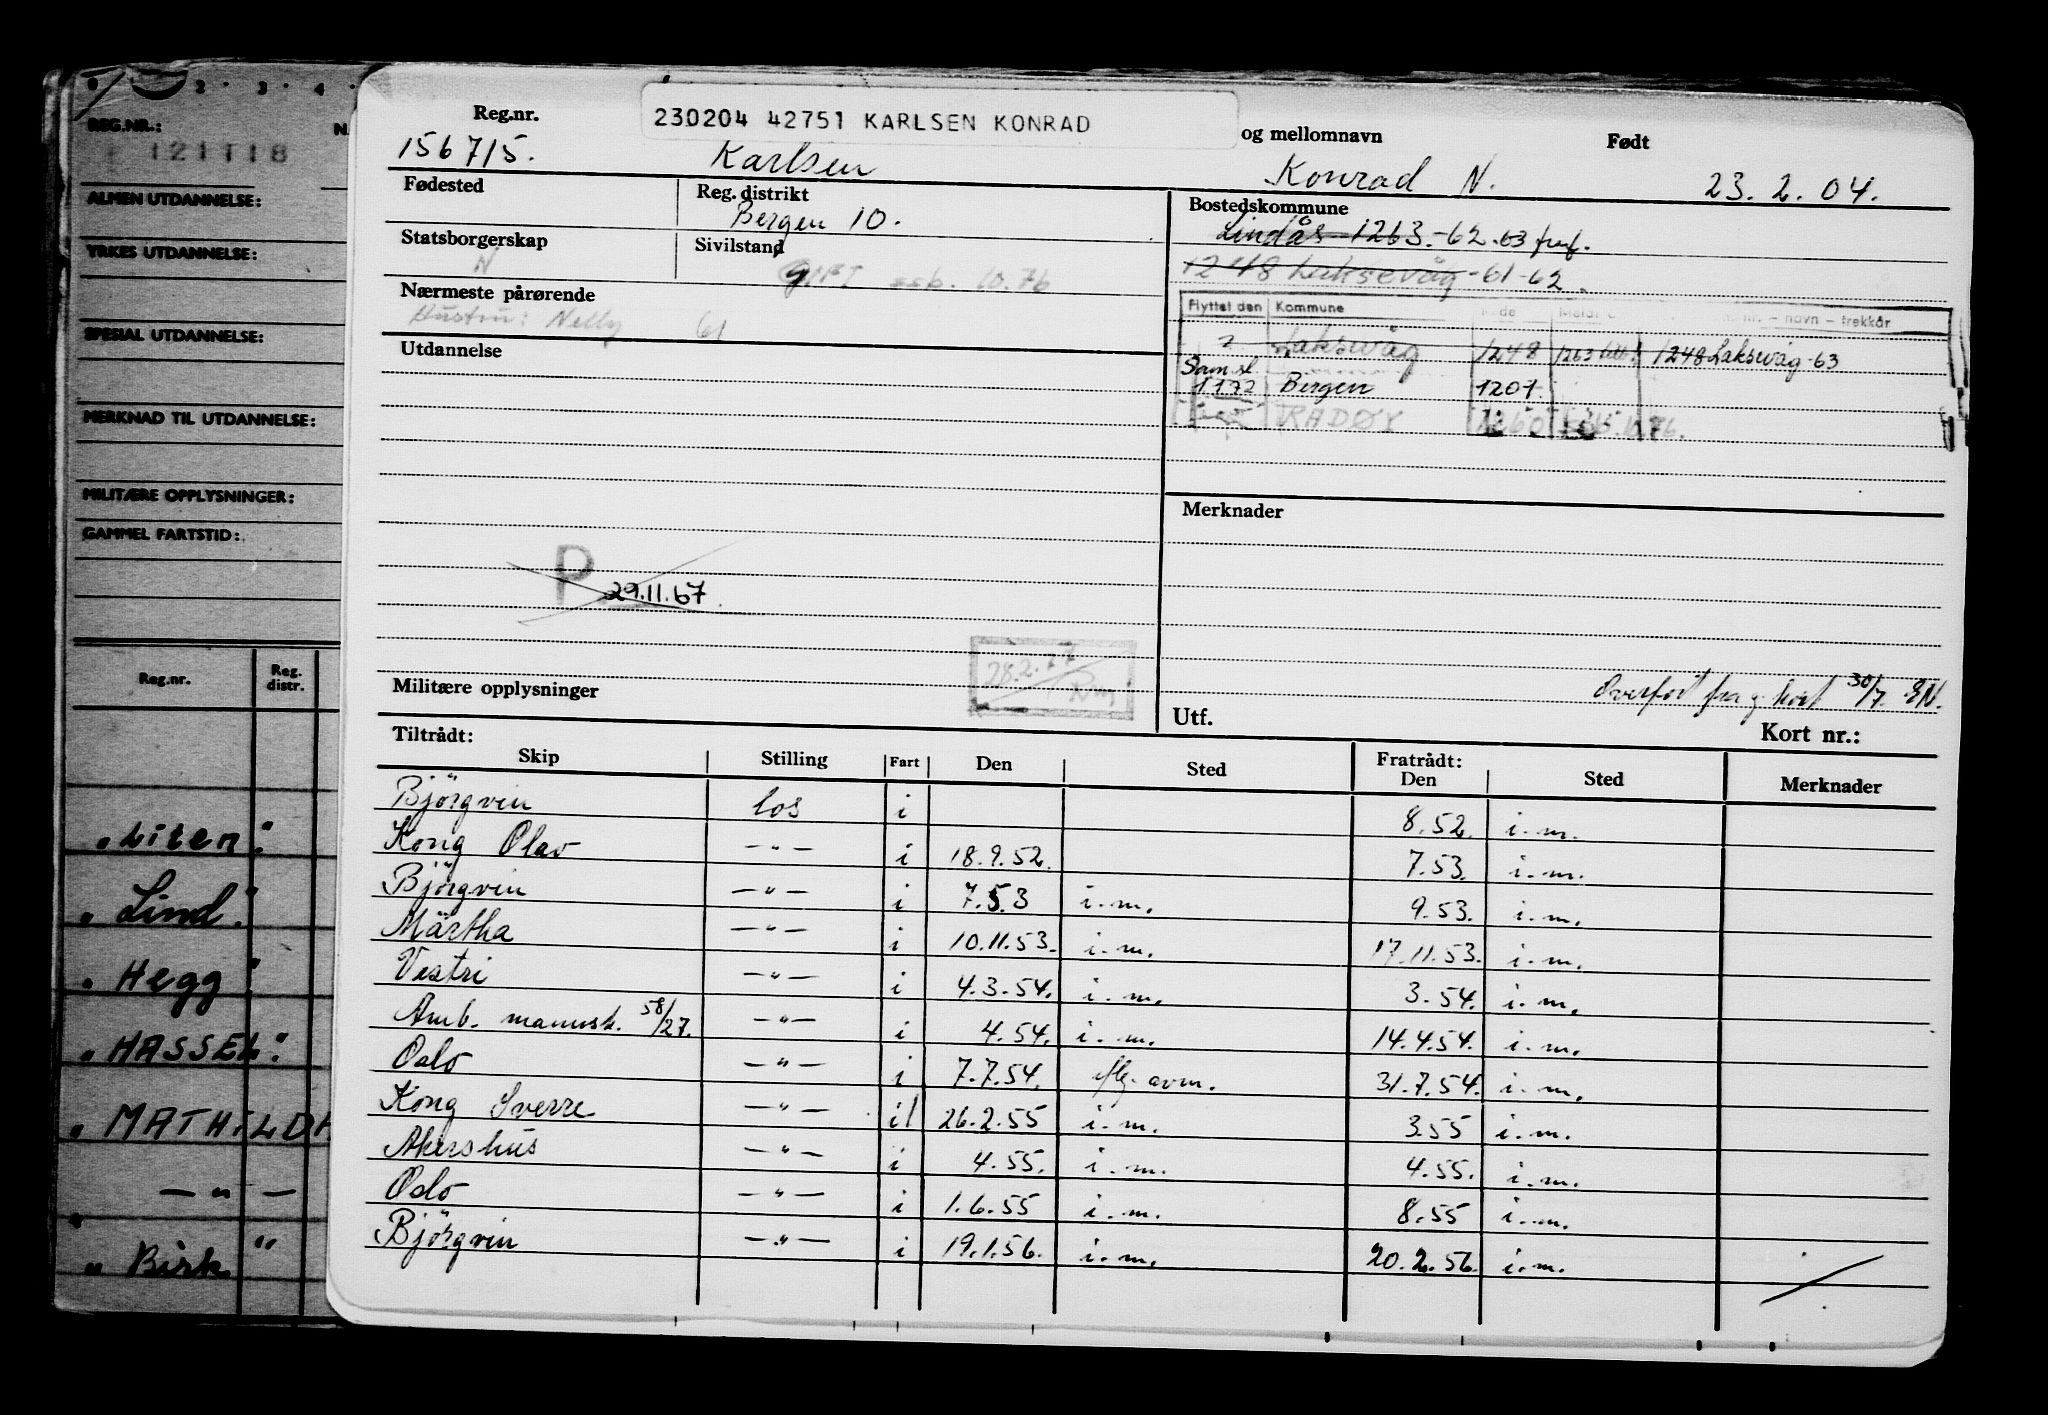 2 · 3 · 4 ·
REG.NR.:
121118
ALMEN UTDANNELSE:
YRKES UTDANNELSE:
SPESIAL UTDANNELSE:
MERKNAD TIL UTDANNELSE:
MILITÆRE OPPLYSNINGER:
GAMMEL FARTSTID:
Reg.nr. Reg. distr.
"Liten"
"Lind"
"Hegg"
"HASSEL"
"MATHILDH
— " —
"Birk"
230204 42751 KARLSEN KONRAD
Reg.nr. og mellomnavn Født
156715. Karlsen Konrad N. 23.2.04.
Fødested Reg. distrikt Bostedskommune
Bergen 10. Lindås 1263.-62.-63
Statsborgerskap Sivilstand
N GIFT ssb. 10.76 1248 Laksevåg -61-62.
Nærmeste pårørende
Hustru: Nelly 61
Flyttet den Kommune – navn – trekkår
? Laksevåg 1248 1263 1248 Laksevåg-63
1.1.72 Bergen 1201.
RADØY 1260 ssb. 10.76.
Utdannelse
Merknader
P 29.11.67.
28.2.77
Militære opplysninger
Overført fra g. kort 30/7. EN.
Utf. Kort nr.:
Tiltrådt: Fratrådt:
Skip Stilling Fart Den Sted Den Sted Merknader
Björgvin los i 8.52. i.m.
Kong Olav —"— i 18.9.52. 7.53. i.m.
Björgvin —"— i 7.53 i.m. 9.53. i.m.
Märtha —"— i 10.11.53. i.m. 17.11.53. i.m.
Vestri —"— i 4.3.54. i.m. 3.54. i.m.
Amb. mannsk. 58/27. —"— i 4.54. i.m. 14.4.54. i.m.
Oslo —"— i 7.7.54. iflg. avm. 31.7.54. i.m.
Kong Sverre —"— i 26.2.55 i.m. 3.55 i.m.
Akershus —"— i 4.55. i.m. 4.55. i.m.
Oslo —"— i 1.6.55 i.m. 8.55 i.m.
Björgvin —"— i 19.1.56. i.m. 20.2.56. i.m.